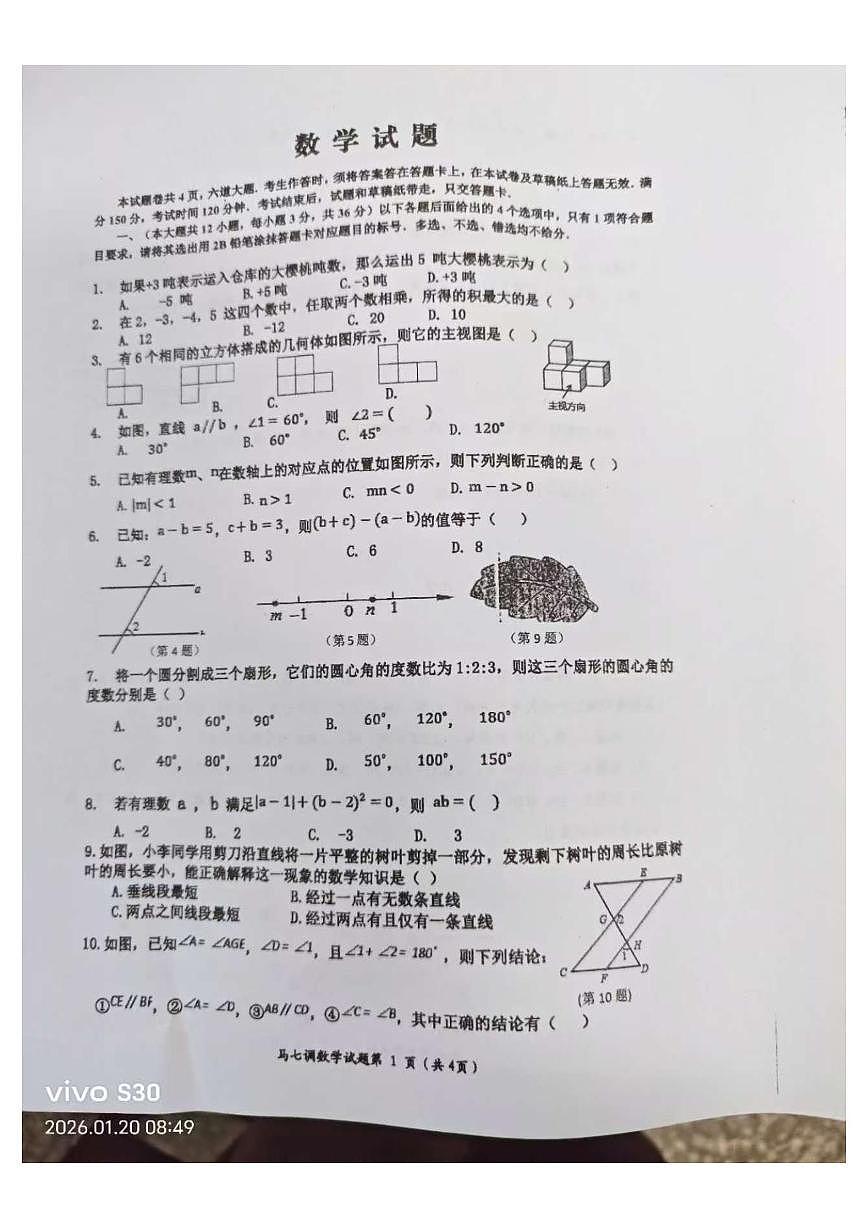 数学试题
本试题卷共4页，六道大题．考生作答时，须将答案答在答题卡上，在本试卷及草稿纸上答题无效．满
分150分，考试时间120分钟．考试结束后，试题和草稿纸带走，只交答题卡．
一、（本大题共12小题，每小题3分，共36分）以下各题后面给出的4个选项中，只有1项符合题
目要求，请将其选出用2B铅笔涂抹答题卡对应题目的标号．多选、不选、错选均不给分．
1. 如果+3吨表示运入仓库的大樱桃吨数，那么运出5 吨大樱桃表示为（ ）
A. -5 吨 B. +5吨 C. -3吨 D. +3吨
2. 在2，-3，-4，5 这四个数中，任取两个数相乘，所得的积最大的是（ ）
A. 12 B. -12 C. 20 D. 10
3. 有6个相同的立方体搭成的几何体如图所示，则它的主视图是（ ）
A. B. C. D.
主视方向
4. 如图，直线 a//b，∠1=60°，则 ∠2=( )
A. 30° B. 60° C. 45° D. 120°
5. 已知有理数m、n在数轴上的对应点的位置如图所示，则下列判断正确的是（ ）
A. |m|<1 B. n>1 C. mn<0 D. m-n>0
6. 已知：a-b=5，c+b=3，则(b+c)-(a-b)的值等于（ ）
A. -2 B. 3 C. 6 D. 8
1 a
2
m -1 0 n 1
（第4题） （第5题） （第9题）
7. 将一个圆分割成三个扇形，它们的圆心角的度数比为1:2:3，则这三个扇形的圆心角的
度数分别是（ ）
A. 30°， 60°， 90° B. 60°， 120°， 180°
C. 40°， 80°， 120° D. 50°， 100°， 150°
8. 若有理数 a ，b 满足|a-1|+(b-2)²=0，则 ab=( )
A. -2 B. 2 C. -3 D. 3
9.如图，小李同学用剪刀沿直线将一片平整的树叶剪掉一部分，发现剩下树叶的周长比原树
叶的周长要小，能正确解释这一现象的数学知识是（ ）
A.垂线段最短 B.经过一点有无数条直线
C.两点之间线段最短 D.经过两点有且仅有一条直线
10.如图，已知∠A=∠AGE，∠D=∠1，且∠1+∠2=180°，则下列结论：
A E B
G 2
H
1
C F D
(第10题)
①CE//BF，②∠A=∠D，③AB//CD，④∠C=∠B，其中正确的结论有（ ）
马七调数学试题第 1 页（共4页）
vivo S30
2026.01.20 08:49